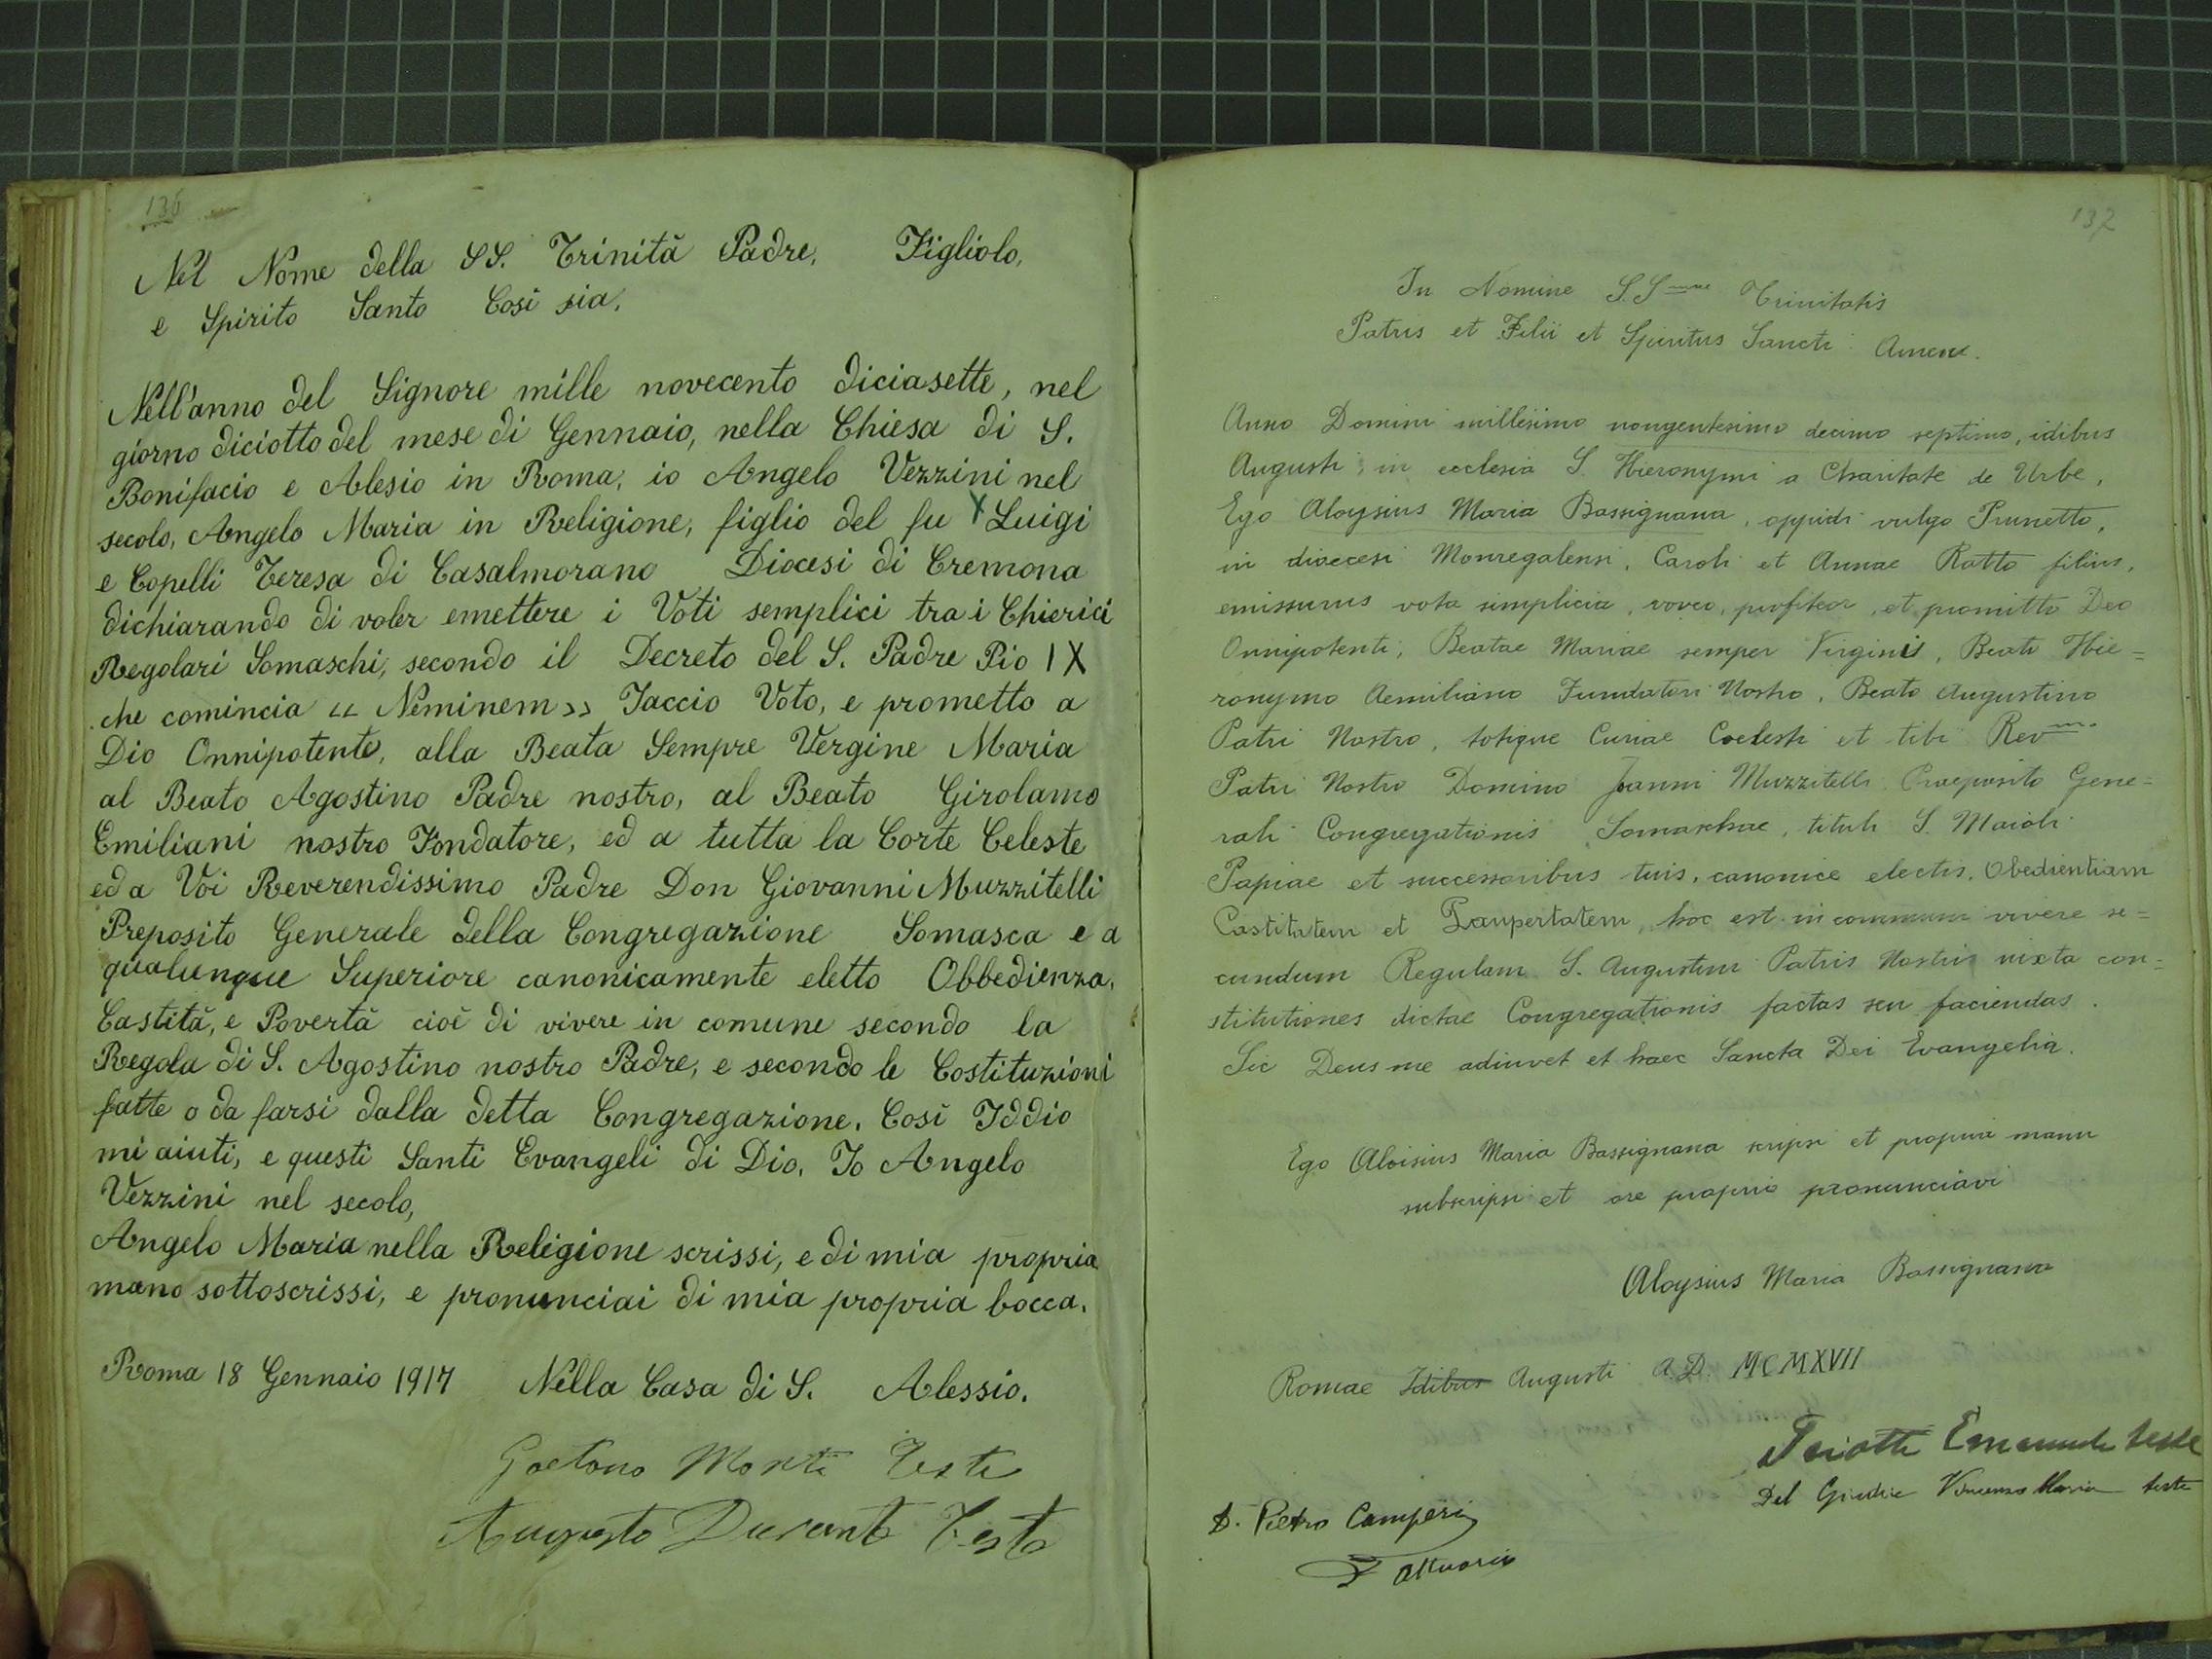 136
Nel Nome della SS. Trinità Padre, Figliolo,
e Spirito Santo Così sia.
Nell'anno del Signore mille novecento diciasette, nel
giorno diciotto del mese di Gennaio, nella Chiesa di S.
Bonifacio e Alesio in Roma, io Angelo Vezzini nel
secolo, Angelo Maria in Religione, figlio del fu Luigi
e Copelli Teresa di Casalmorano Diocesi di Cremona
dichiarando di voler emettere i Voti semplici tra i Chierici
Regolari Somaschi, secondo il Decreto del S. Padre Pio IX
che comincia « Neminem » Faccio Voto, e prometto a
Dio Onnipotente, alla Beata Sempre Vergine Maria
al Beato Agostino Padre nostro, al Beato Girolamo
Emiliani nostro Fondatore, ed a tutta la Corte Celeste
ed a Voi Reverendissimo Padre Don Giovanni Muzzitelli
Preposito Generale della Congregazione Somasca e a
qualunque Superiore canonicamente eletto Obbedienza,
Castità, e Povertà cioè di vivere in comune secondo la
Regola di S. Agostino nostro Padre, e secondo le Costituzioni
fatte o da farsi dalla detta Congregazione. Così Iddio
mi aiuti, e questi Santi Evangeli di Dio. Io Angelo
Vezzini nel secolo,
Angelo Maria nella Religione scrissi, e di mia propria
mano sottoscrissi, e pronunciai di mia propria bocca.
Roma 18 Gennaio 1917 Nella Casa di S. Alessio.
Gaetano Monti Teste
Augusto Durante Teste
137
In Nomine S.Smae Trinitatis
Patris et Filii et Spiritus Sancti. Amen.
Anno Domini millesimo nongentesimo decimo septimo, idibus
Augusti, in ecclesia S. Hieronymi a Charitate de Urbe,
Ego Aloysius Maria Bassignana, oppidi vulgo Prunetto,
in dioecesi Monregalensi, Caroli et Annae Ratto filius,
emissurus vota simplicia, voveo, profiteor, et promitto Deo
Onnipotenti, Beatae Mariae semper Virginis, Beato Hie=
ronymo Aemiliano Fundatori Nostro, Beato Augustino
Patri Nostro, totique Curiae Coelesti et tibi Revmo
Patri Nostro Domino Joanni Muzzitelli Praeposito Gene=
rali Congregationis Somaschae, tituli S. Maioli
Papiae et successoribus tuis, canonice electis, Obedientiam
Castitatem et Paupertatem, hoc est in communi vivere se=
cundum Regulam S. Augustini Patris Nostri iuxta con=
stitutiones dictae Congregationis factas seu faciendas.
Sic Deus me adiuvet et haec Sancta Dei Evangelia.
Ego Aloisius Maria Bassignana scripsi et propria manu
subscripsi et ore proprio pronunciavi
Aloysius Maria Bassignana
Romae Idibus Augusti A.D. MCMXVII
Emanuele teste
Del Giudice Vincenzo Maria teste
D. Pietro Camperi
Attuario